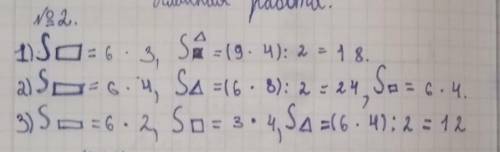 №2.
1) S▭ = 6 · 3, S△ = (9 · 4) : 2 = 18.
2) S▭ = 6 · 4, S△ = (6 · 8) : 2 = 24, S▫ = 6 · 4.
3) S▭ = 6 · 2, S□ = 3 · 4, S△ = (6 · 4) : 2 = 12